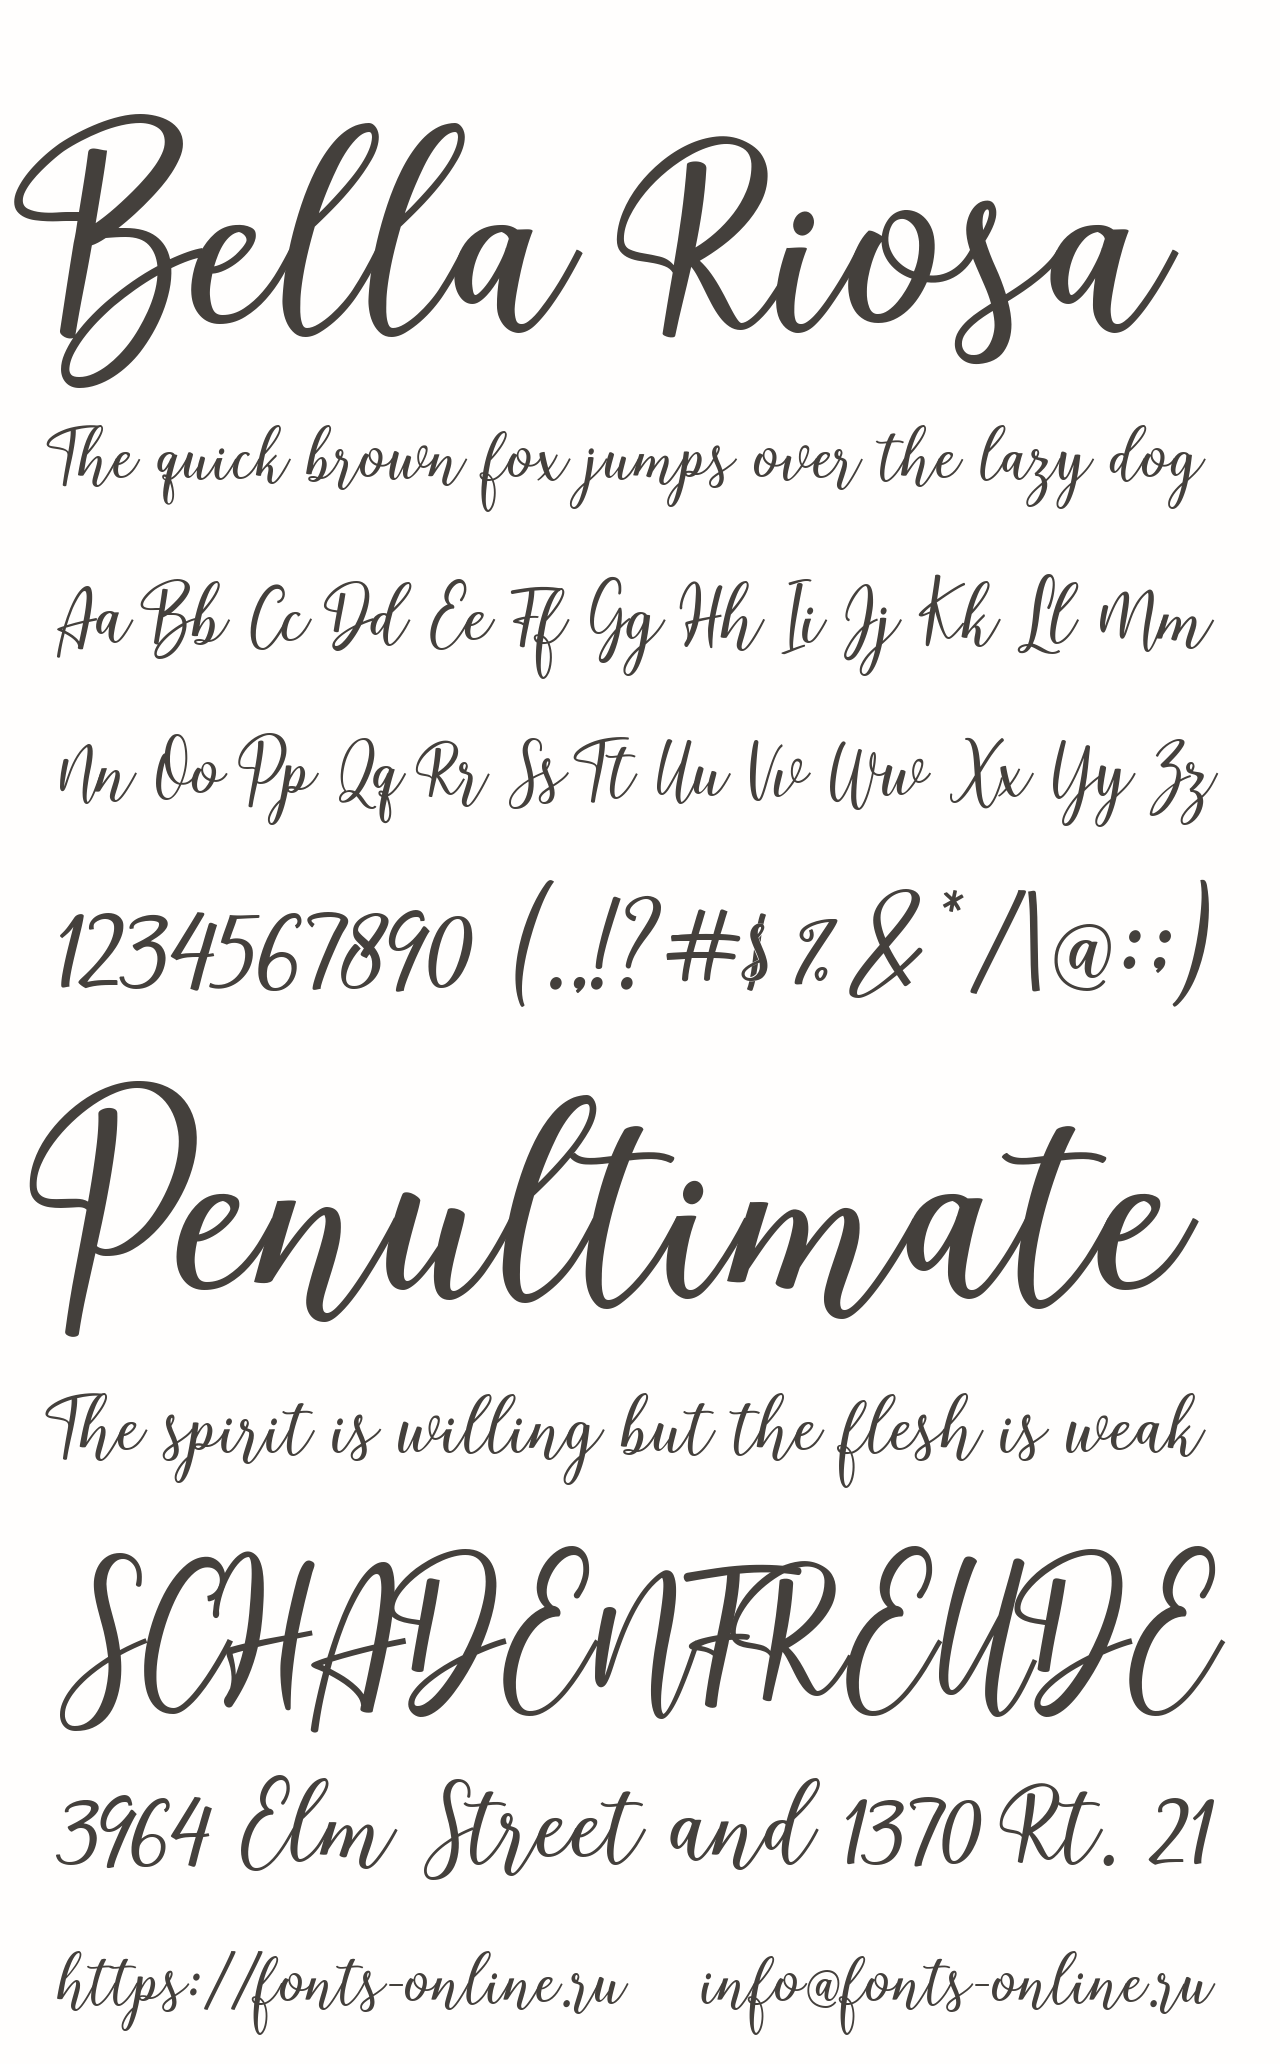 Bella Riosa
The quick brown fox jumps over the lazy dog
Aa Bb Cc Dd Ee Ff Gg Hh Ii Jj Kk Ll Mm
Nn Oo Pp Qq Rr Ss Tt Uu Vv Ww Xx Yy Zz
1234567890 (.,!?#$ % & * /\@:;)
Penultimate
The spirit is willing but the flesh is weak
SCHADENFREUDE
3964 Elm Street and 1370 Rt. 21
https://fonts-online.ru info@fonts-online.ru